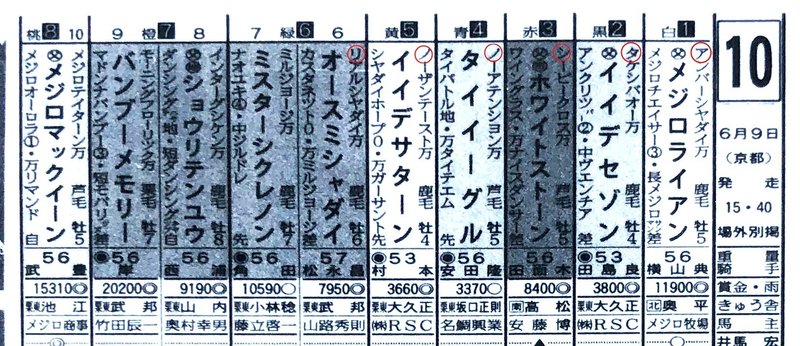 10
6月9日
(京都)
発走
15・40
場外別掲
重量
騎手
賞金・雨
きゅう舎
馬主
白 1
アンバーシヤダイ万 鹿毛 牡5
メジロライアン
メジロチエイサー③・長メジロサン差
56
横山典
11900○
北 奥平
メジロ牧場
黒 2
タケシバオー万 鹿毛 牡4
イイデセゾン
アンクリツツ②・中ヴエンチア 差
◉53
田島良
3800◎
栗東大久正
㈱RSC
赤 3
シービークロス万 芦毛
ホワイトストーン
ワイングラス・万ナイスダンサー差
56
田面木
8400◎
南 高松
安藤博
青 4
ノーアテンション万 鹿毛 牡4
タイイーグル
タイパトル地・万タイテエム
56
安田隆
3370○
栗東坂口正則
名鯛興業
黄 5
ノーザンテースト万 鹿毛 牡4
イイデサターン
シヤダイホープ0・万ガーサント先
◉53
村本
3660◎
栗東大久正
㈱RSC
緑 6
6
リアルシヤダイ万 鹿毛 牡5
オースミシャダイ
カスタネツト0・万ミルジョージ差
57
松永昌
7950◎
栗東武邦
山路秀則
7
ミルジョージ万 鹿毛 牡6
ミスターシクレノン
ナオユキ④・中シルドレ 先
◉56
角田
10590○
栗東小林稔
藤立啓一
橙 7
8
インターグシケン万 芦毛 牡8
ショウリテンユウ
56
西浦
9190◎
栗東山内
奥村幸男
9
モーニングフローリツク万 栗毛 牡7
バンブーメモリー
マドンナバンブー③・短モバリツズ差
◉56
岸
20200◎
栗東武邦
竹田辰一
桃 8
10
メジロテイターン万 芦毛 牡5
メジロマックイーン
メジロオーロラ①・万リマンド 自
56
武豊
15310◎
栗東池江
メジロ商事